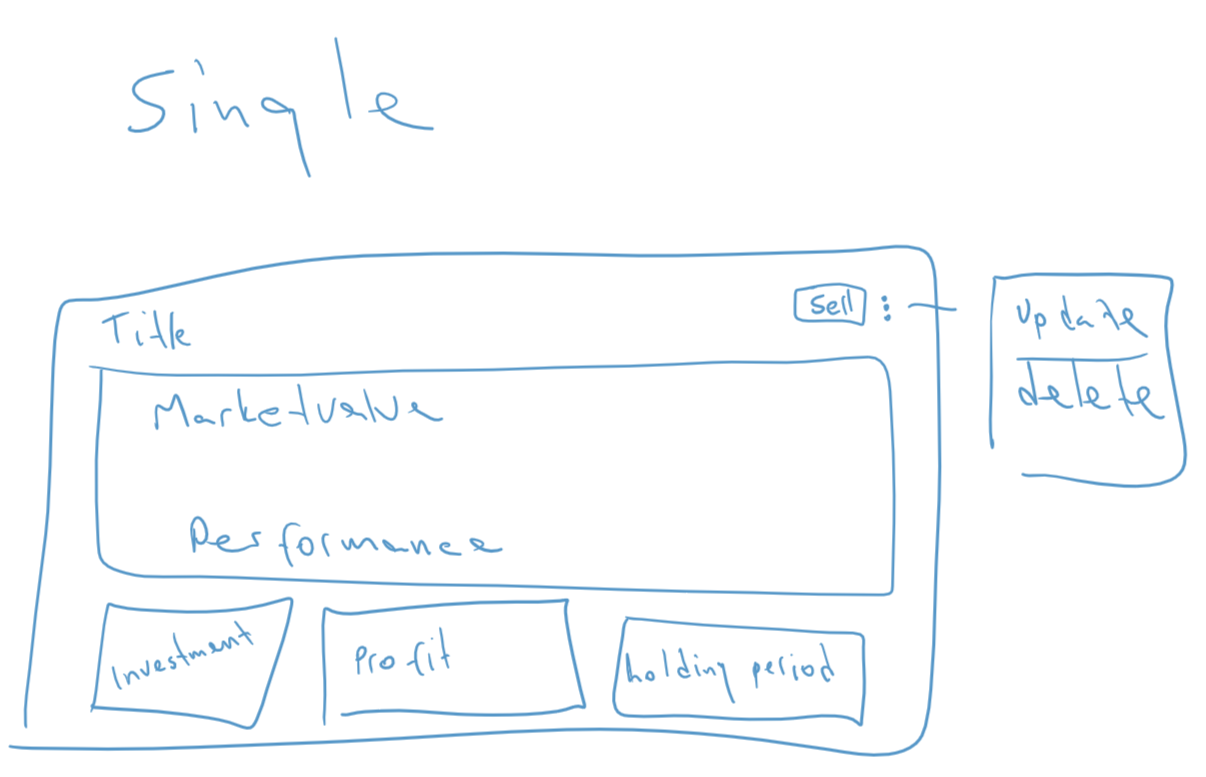 Single
Title
Sell
update
delete
Marketvalue
Performance
Investment
Profit
holding period